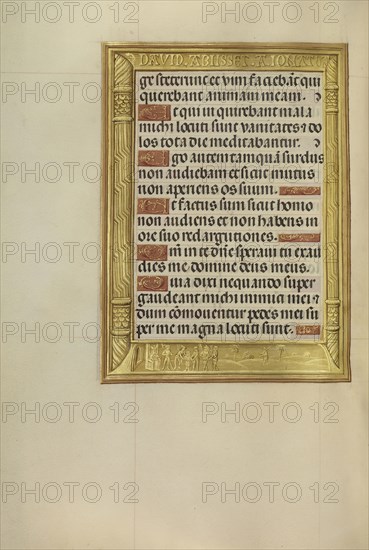 DAVID ABIIS
ge steterunt et vim faciebãt qui
querebant animam meam.
Et qui inquirebant mala
michi locuti sunt vanitates &
los tota die meditabantur.
Ego autem tamquã surdus
non audiebam et sicut mutus
non aperiens os suum.
Et factus sum sicut homo
non audiens et non habens in
ore suo redargutiones.
Qm in te dñe speraui tu exau
dies me domine deus meus.
Quia dixi nequando super
gaudeant michi inimici mei &
dum cõmouentur pedes mei su
per me magna locuti sunt.
PHOTO 12
PHOTO 12
PHOTO 12
PHOTO 12
PHOTO 12
PHOTO 12
PHOTO 12
PHOTO 12